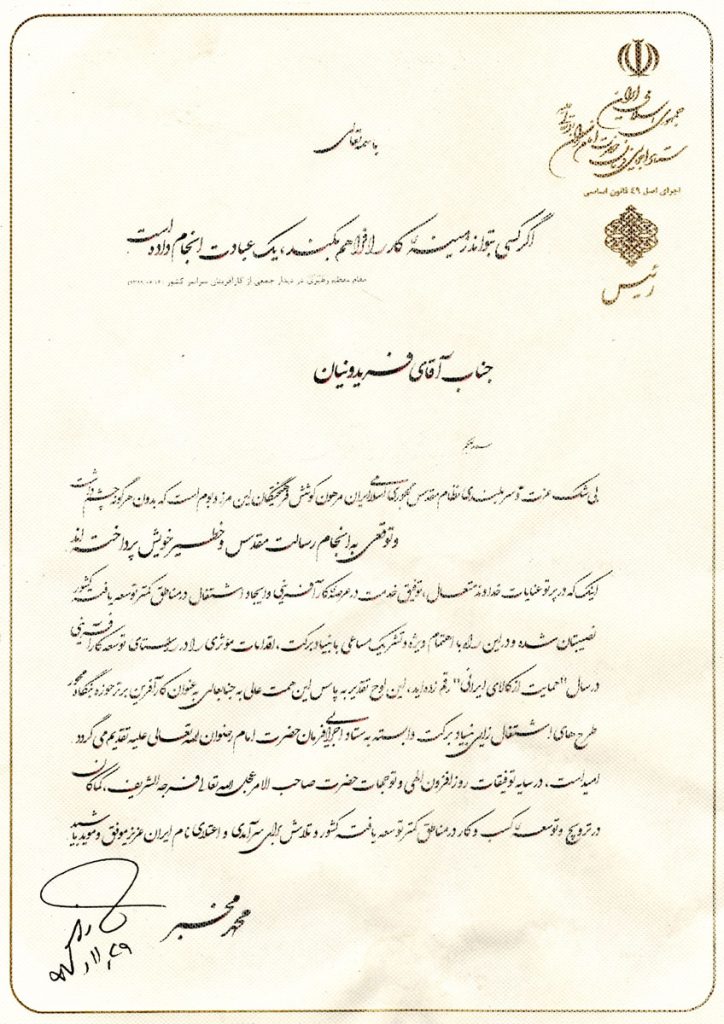 جمهوری اسلامی ایران
ستاد اجرایی فرمان حضرت امام
اجرای اصل ۴۹ قانون اساسی
رئیس
باسمه تعالی
اگر کسی بتواند زمینهٔ کار را فراهم بکند، یک عبادت انجام داده است
مقام معظم رهبری در دیدار جمعی از کارآفرینان سراسر کشور
جناب آقای فریدونیان
سلام علیکم
بی شک عزت و سربلندی نظام مقدس جمهوری اسلامی ایران مرهون کوشش فرهیختگان این مرز و بوم است که بدون هرگونه چشم داشت
و توقعی به انجام رسالت مقدس و خطیر خویش پرداخته اند
اینک که در پرتو عنایات خداوند متعال، توفیق خدمت در عرصه کارآفرینی و ایجاد اشتغال در مناطق کمتر توسعه یافته کشور
نصیبتان شده و در این راه با اهتمام ویژه و تشریک مساعی با بنیاد برکت، اقدامات مؤثری را در راستای توسعه کارآفرینی
در سال "حمایت از کالای ایرانی" رقم زده اید، این لوح تقدیر به پاس این همت عالی به جنابعالی به عنوان کارآفرین برتر حوزه بنگاه محور
طرح های اشتغال زایی بنیاد برکت وابسته به ستاد اجرایی فرمان حضرت امام رضوان الله تعالی علیه تقدیم می گردد
امید است، در سایه توفیقات روز افزون الهی و توجهات حضرت صاحب الامر عجل الله تعالی فرجه الشریف، کماکان
در ترویج و توسعهٔ کسب و کار در مناطق کمتر توسعه یافته کشور و تلاش برای سرآمدی و اعتلای نام ایران عزیز موفق و موید باشید
محمد مخبر